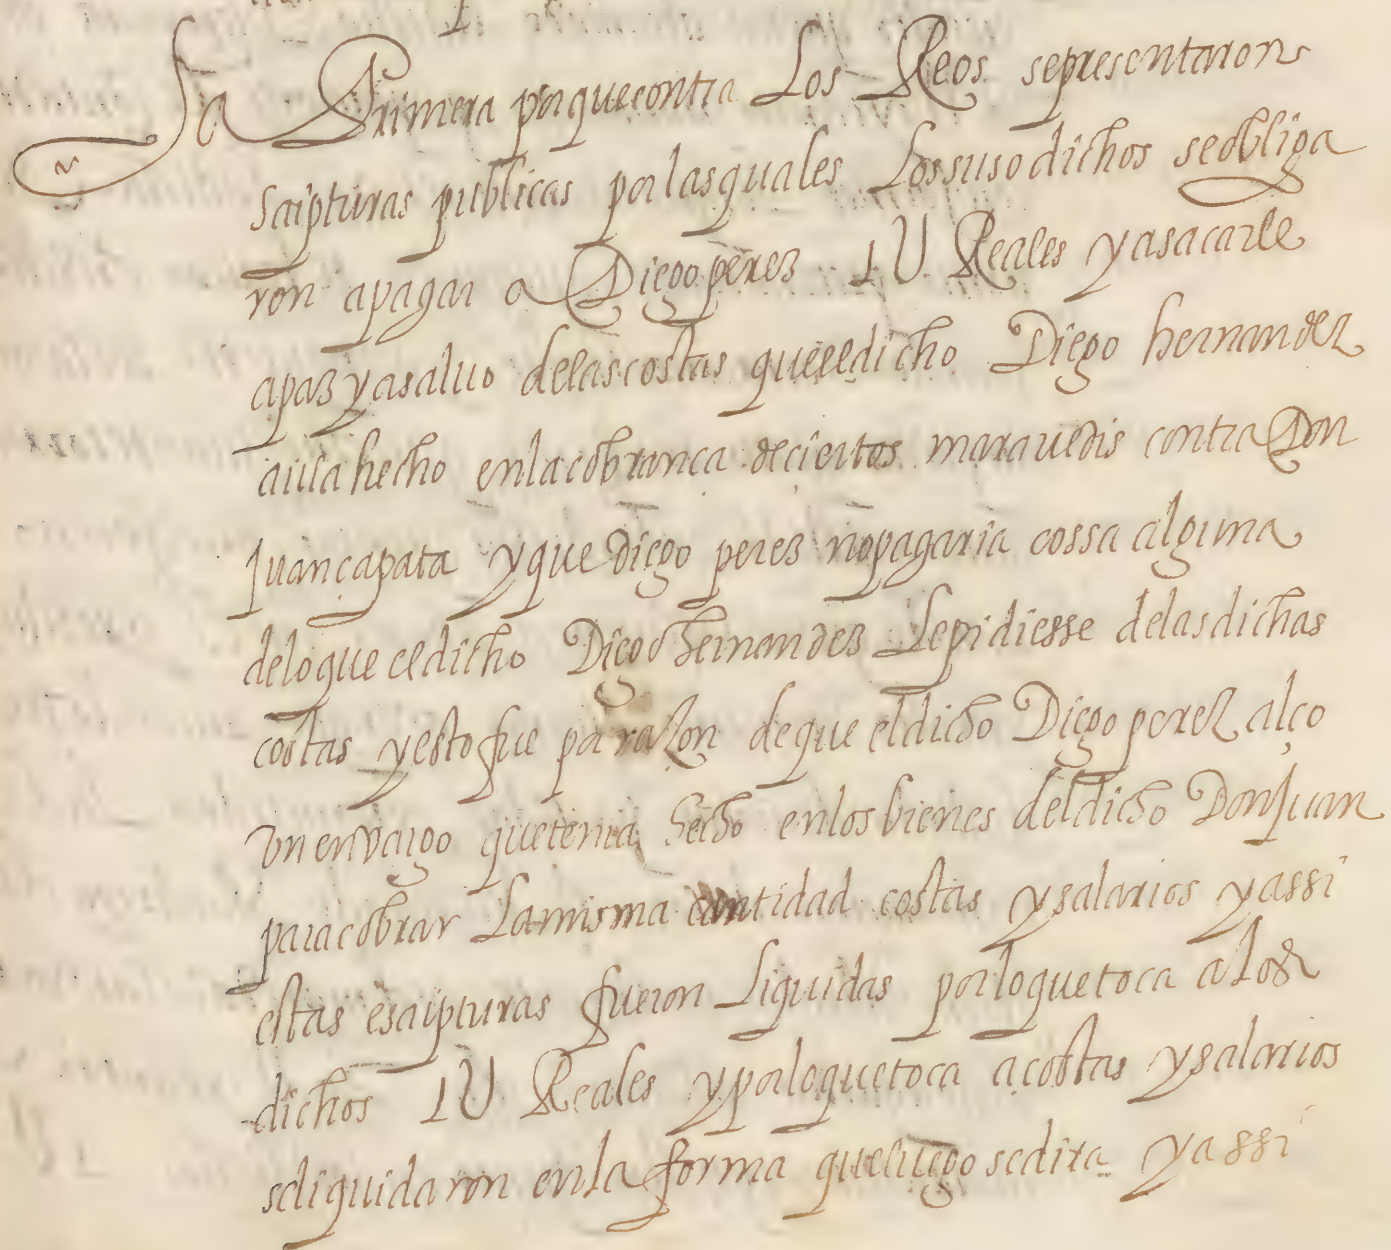 La Primera porque contra Los Reos se presentaron
scripturas publicas por las quales Los suso dichos se obliga
ron a pagar a Diego perez 1U Reales y a sacarle
a paz y a saluo de las costas que el dicho Diego hernandez
auia hecho en la cobrança de ciertos marauedis contra Don
Juan çapata y que Diego perez no pagaria cossa alguna
de lo que el dicho Diego hernandez Le pidiesse de las dichas
costas y esto fue por razon de que el dicho Diego perez alço
vn envargo que tenia hecho en los bienes del dicho Don Juan
para cobrar La misma cantidad costas y salarios y assi
estas escripturas fueron Liquidas por lo que toca a Los
dichos 1U Reales y por lo que toca a costas y salarios
se liquidaron en la forma que luego se dira y assi